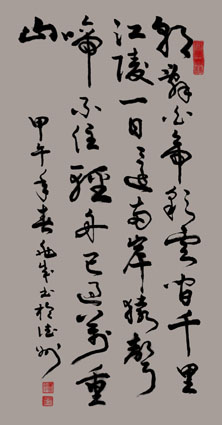 朝辭白帝彩雲間千里
江陵一日還兩岸猿聲
啼不住輕舟已過萬重
山
甲午年春書於德州